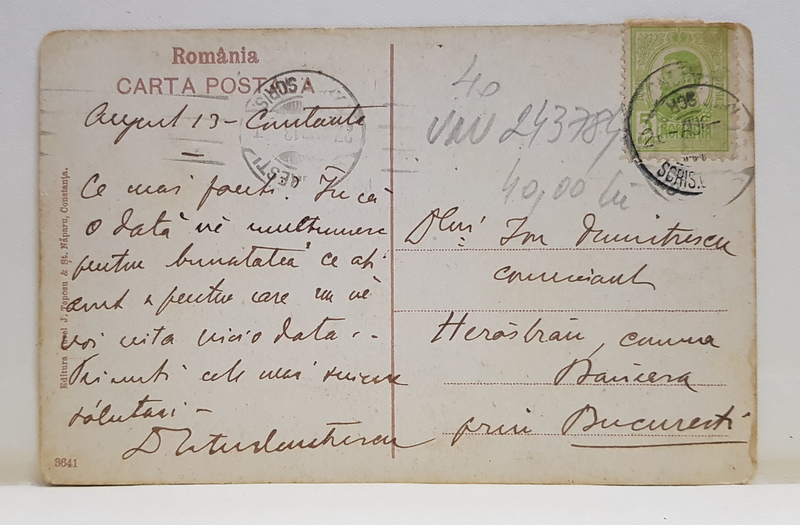 România
CARTA POSTALA
August 13 - Constanta
Ce mai faceti. Inca
o dată vĕ multumesc
pentru bunatatea ce ati
avut pentru care nu vĕ
voi uita nicio data
Primiti cele mai sincere
salutari -
40
VNV 243784
40,00 lei
Dlui Ion Dumitrescu
comerciant
Herăstrău, comuna
Băneasa
prin Bucuresti
SCRIS.
Editura Iosef J. Toposu & St. Năparu, Constanţa.
3641